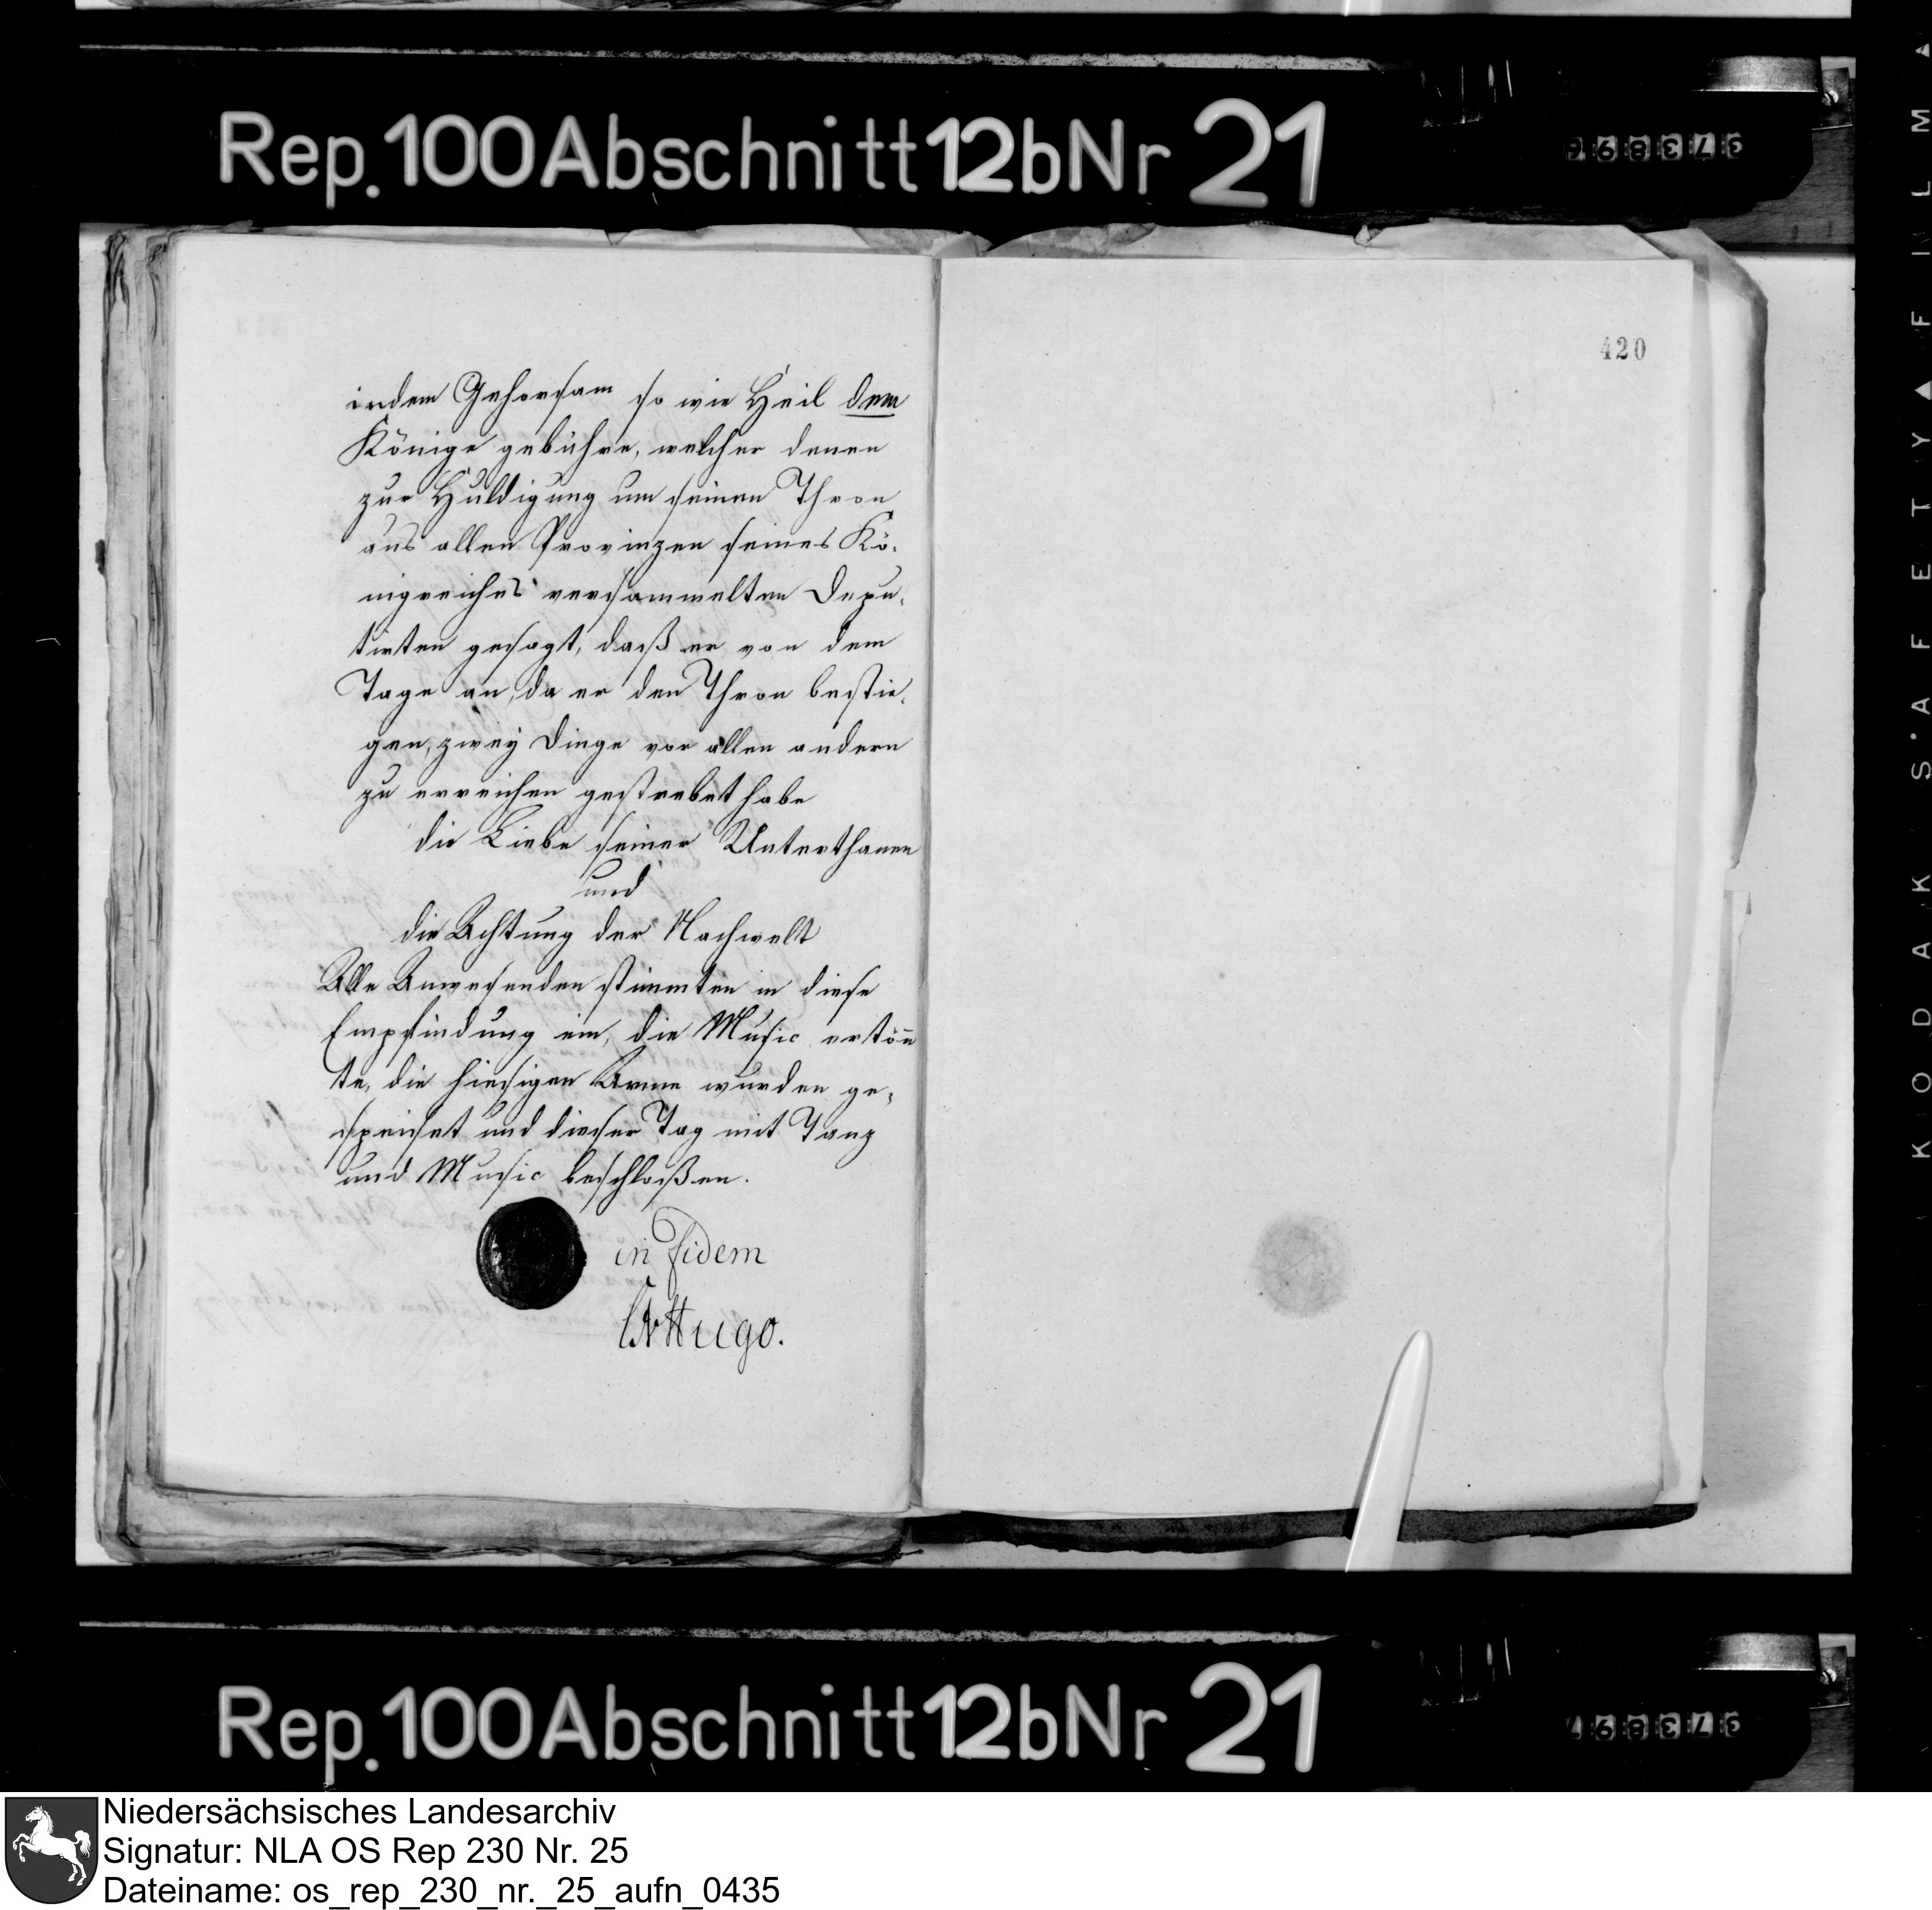 Rep. 100 Abschnitt 12b Nr 21
373896
420
indem Gehorsam so wie Heil dem
Könige gebühre, welcher denen
zur Huldigung um seinen Thron
aus allen Provinzen seines Kö-
nigreiches versammelten Depu-
tirten gesagt, daß er von dem
Tage an, da er den Thron bestie-
gen, zwey Dinge vor allen andern
zu erreichen gestrebet habe
die Liebe seiner Unterthanen
und
die Achtung der Nachwelt
Alle Anwesenden stimmten in diese
Empfindung ein, die Music ertön̄
te, die hiesigen Arme wurden ge-
speiset und dieser Tag mit Tanz
und Music beschloßen.
in fidem
Hugo.
Rep. 100 Abschnitt 12b Nr 21
373897
KODAK SAFETY FILM
Niedersächsisches Landesarchiv
Signatur: NLA OS Rep 230 Nr. 25
Dateiname: os_rep_230_nr._25_aufn_0435